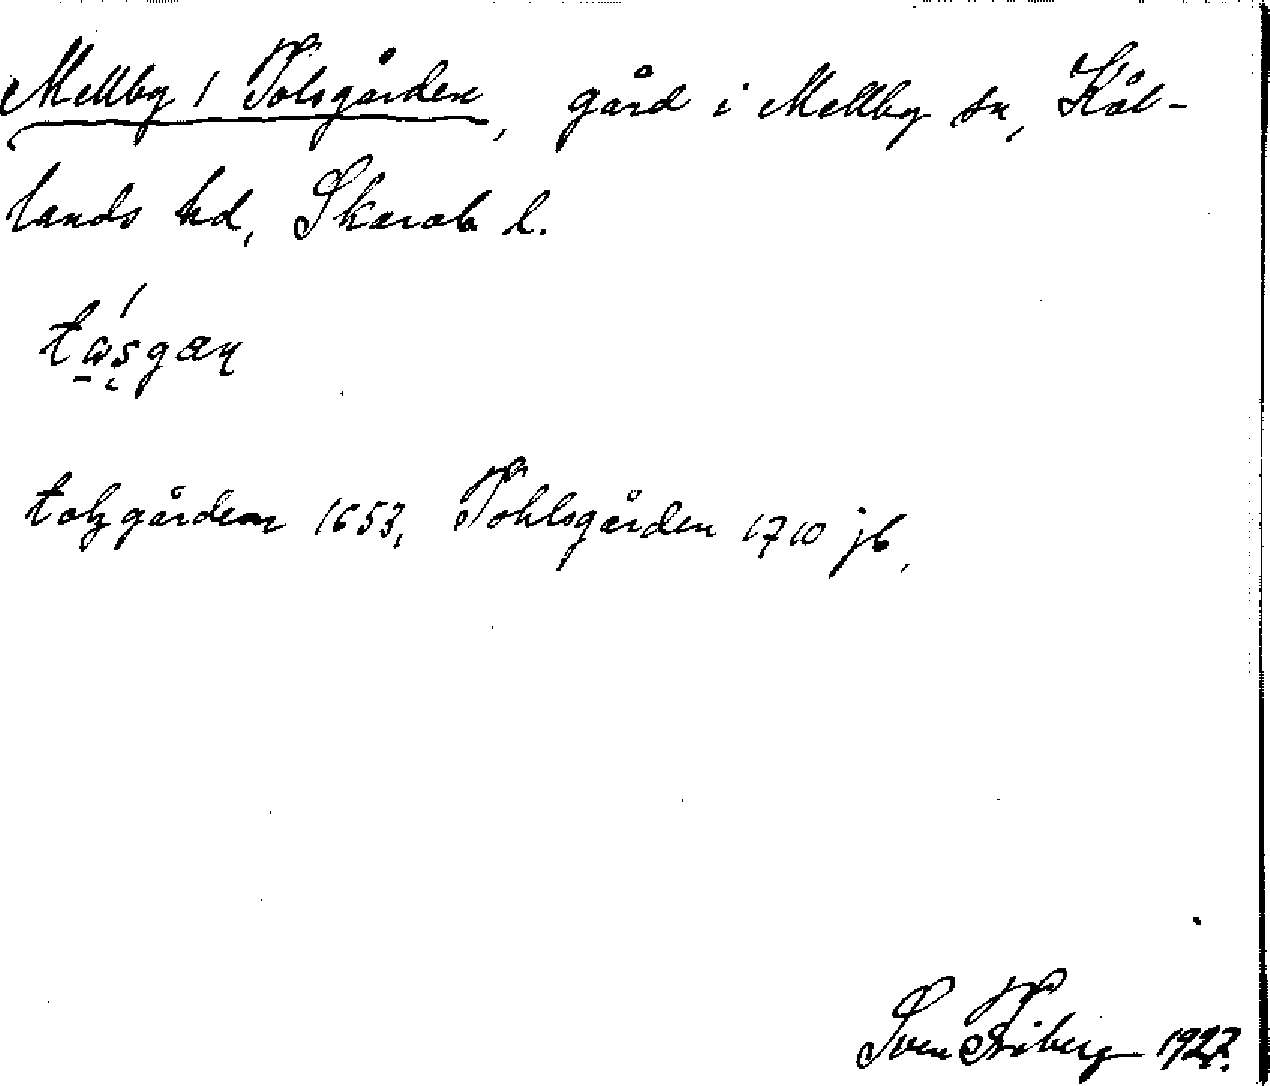 Mellby / Tolsgården, gård i Mellby sn, Kål-
lands hd, Skarab. l.
tolzgården 1653, Tohlsgården 1710 jb,
Sven Friberg 1927.